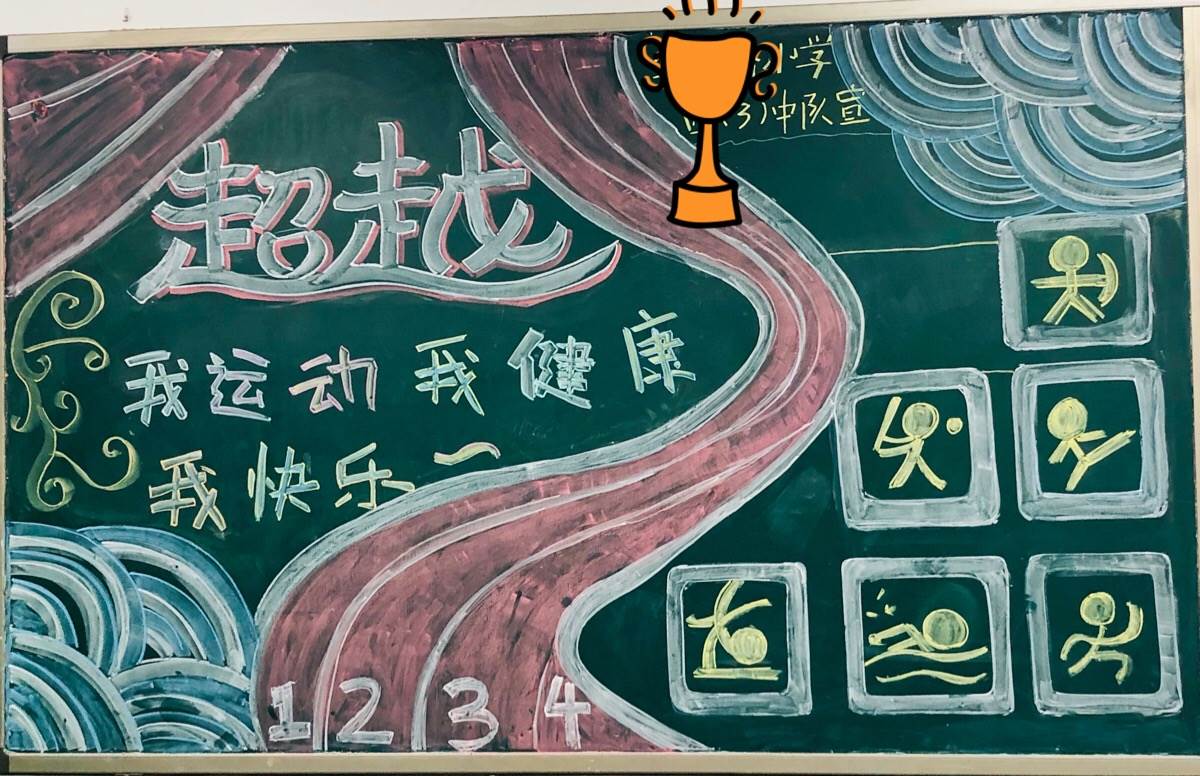 超越
小学
3)中队宣
我运动我健康
我快乐~
1 2 3 4